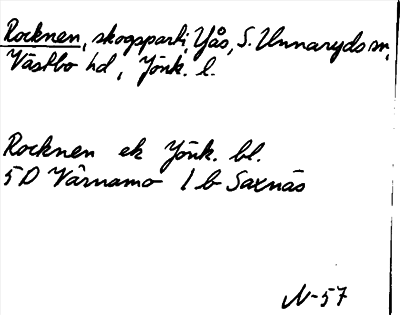 Rocknen, skogsparti, Yås, S. Unnaryds sn,
Västbo hd, Jönk. l.
Rocknen ek Jönk. bl.
5D Värnamo 1 b Saxnäs
N-57